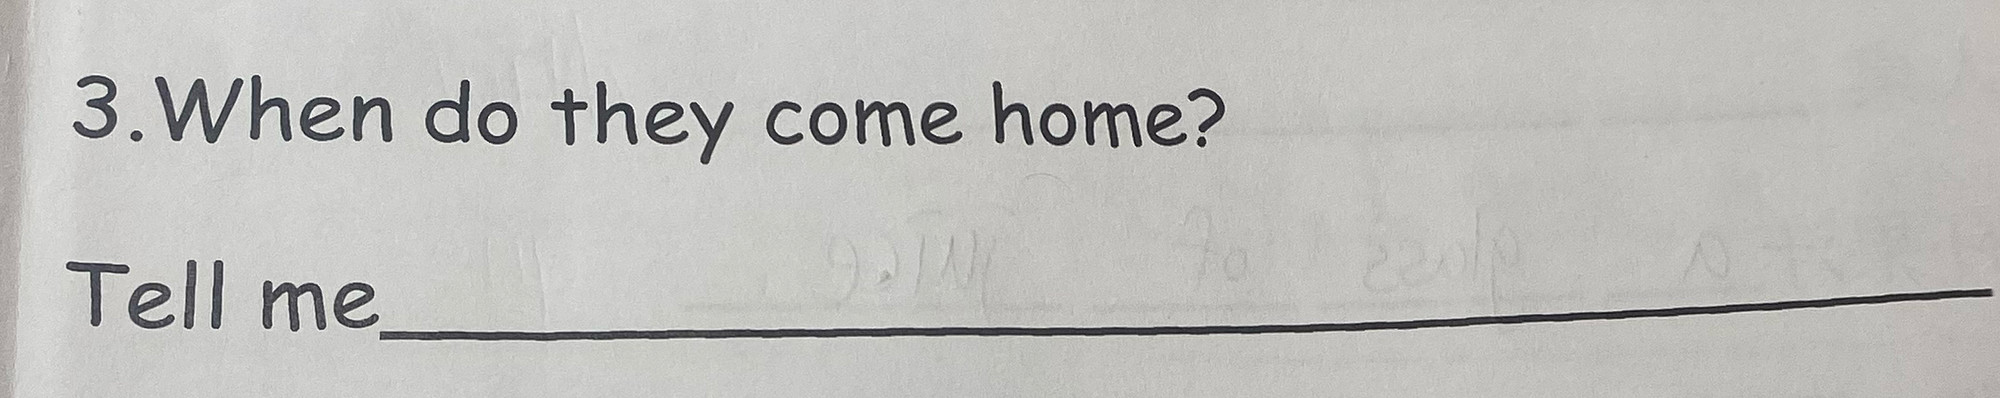 3. When do they come home?
Tell me